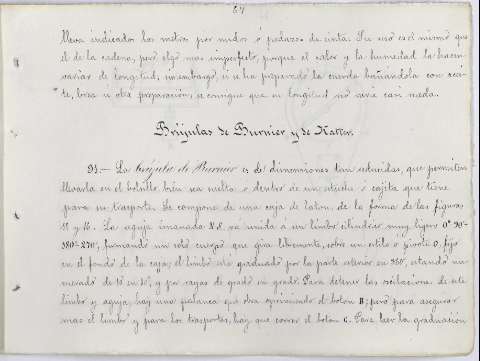 67
lleva indicados los metros por nudos ó pedazos de cinta. Su uso es el mismo que
el de la cadena, pero algo mas imperfecto, porque el calor y la humedad la hacen
variar de longitud; sin embargo, si se ha preparado la cuerda bañándola con acei-
te, brea ú otra preparación, se consigue que su longitud no varíe casi nada.
Brújulas de Burnier y de Katter.
91.— La brújula de Burnier es de dimensiones tan reducidas, que permiten
llevarla en el bolsillo bien sea suelta ó dentro de un estuche ó cajita que tiene
para su trasporte. Se compone de una caja de laton, de la forma de las figuras
15 y 16. La aguja imanada N.S. va unida á un limbo cilíndrico muy ligero 0°-90-
180-270°, formando un solo cuerpo que gira libremente, sobre un estilo ó pivote O. fijo
en el fondo de la caja; el limbo está graduado por la parte exterior en 360°, estando nu-
merado de 10 en 10°, y por rayas de grado en grado. Para detener las oscilaciones de este
limbo y aguja, hay una palanca que obra oprimiendo el boton B; pero para asegurar
mas el limbo y para los trasportes, hay que correr el boton C. Para leer la graduación